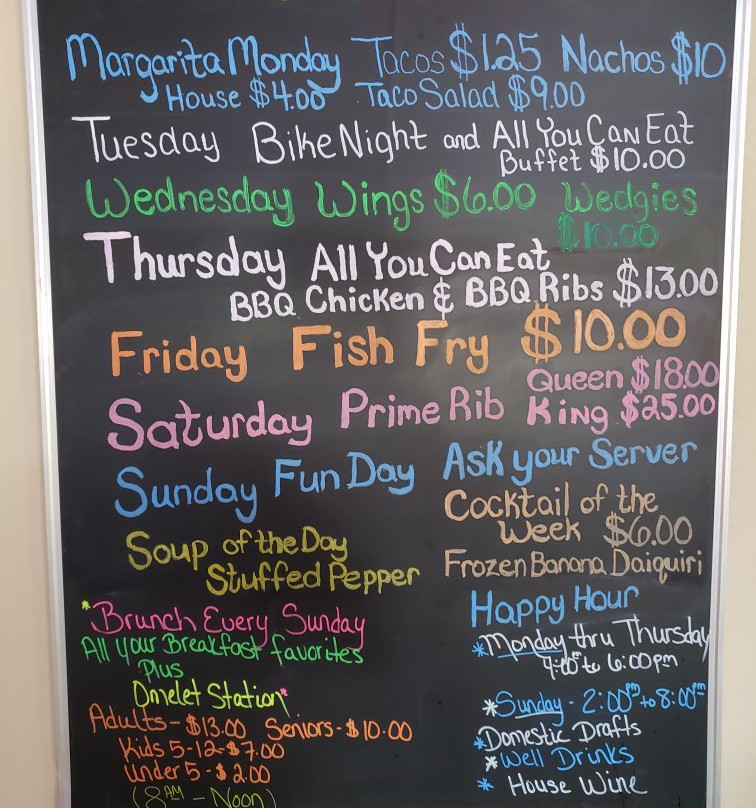 Margarita Monday Tacos $1.25 Nachos $10
House $4.00 Taco Salad $9.00
Tuesday Bike Night and All You Can Eat
Buffet $10.00
Wednesday Wings $6.00 Wedgies
$10.00
Thursday All You Can Eat
BBQ Chicken & BBQ Ribs $13.00
Friday Fish Fry $10.00
Saturday Prime Rib Queen $18.00
King $25.00
Sunday Fun Day Ask your Server
Soup of the Day
Stuffed Pepper
Cocktail of the
Week $6.00
Frozen Banana Daiquiri
*Brunch Every Sunday
All your Breakfast favorites
Plus
Omelet Station*
Adults - $13.00 Seniors - $10.00
Kids 5-12 - $7.00
Under 5 - $2.00
(8AM - Noon)
Happy Hour
*Monday thru Thursday
4:00pm to 6:00pm
*Sunday - 2:00pm to 8:00pm
*Domestic Drafts
*Well Drinks
* House Wine